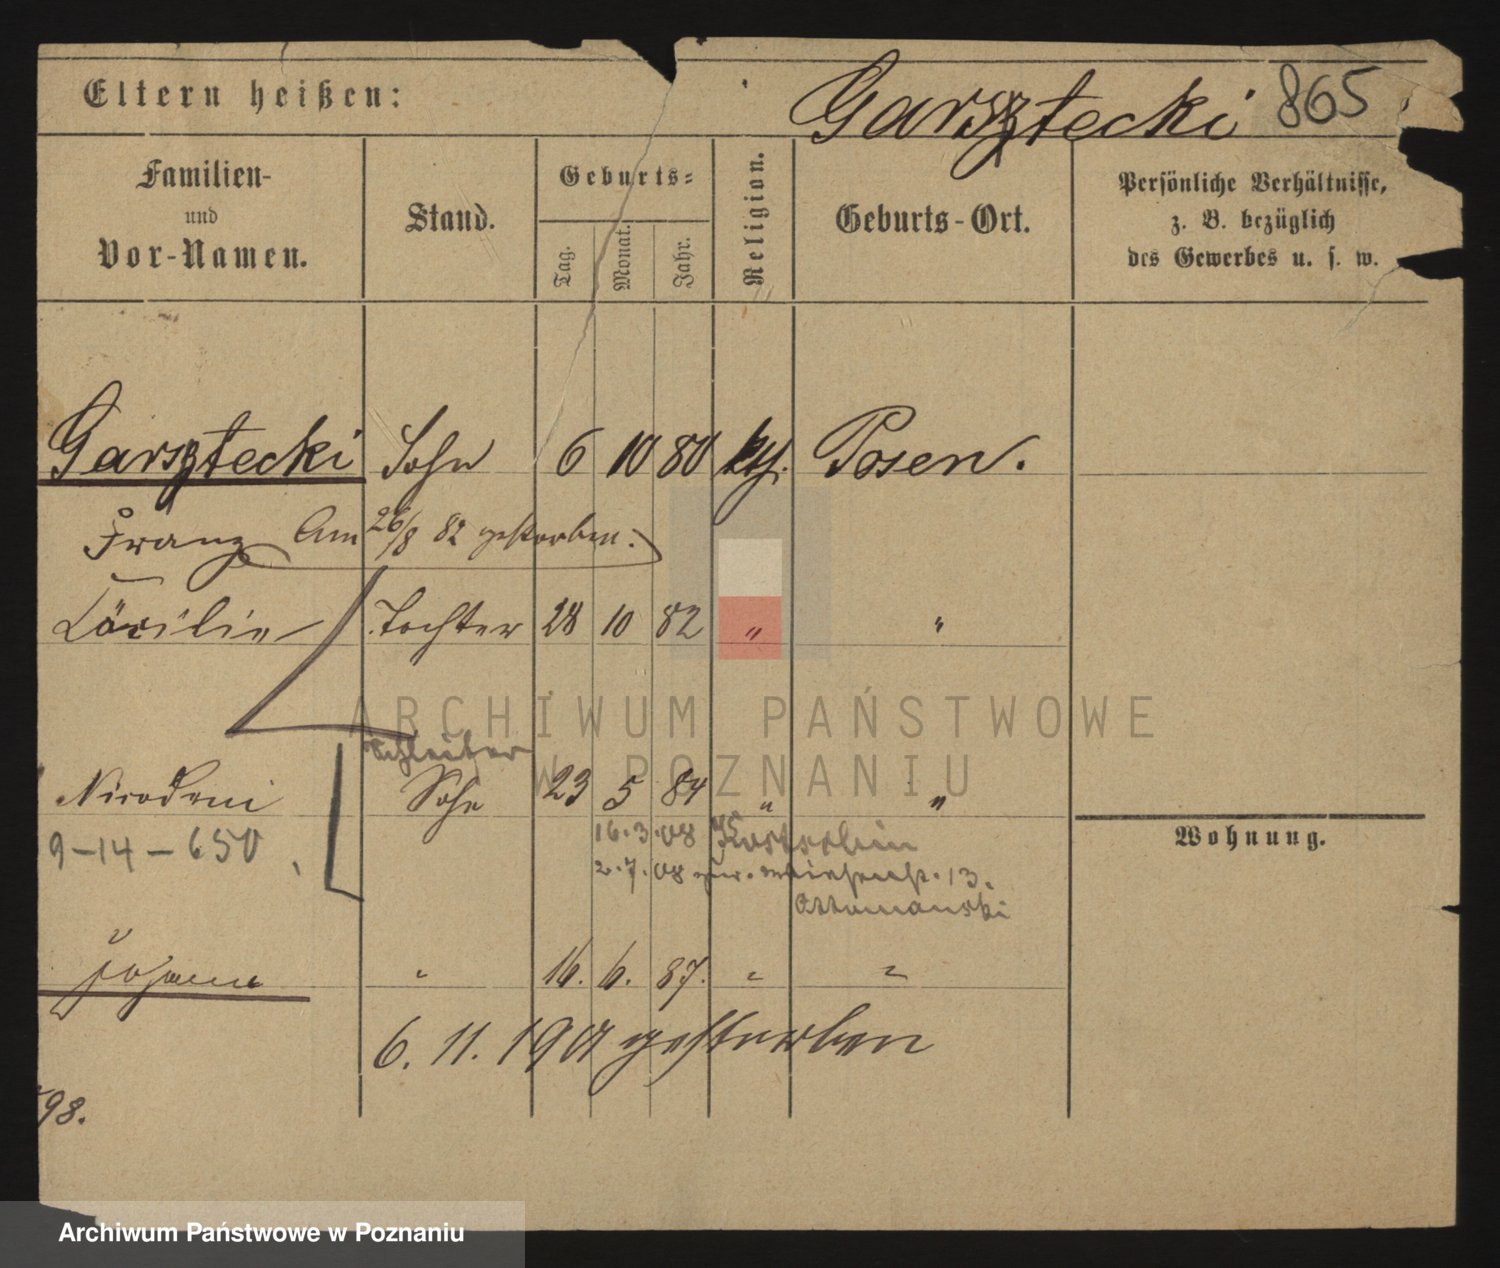 Eltern heißen:
Garsztecki 865
Familien-
und
Vor-Namen.
Stand.
Geburts-
Tag.
Monat.
Jahr.
Religion.
Geburts-Ort.
Persönliche Verhältnisse,
z. B. bezüglich
des Gewerbes u. s. w.
Garsztecki Sohn 6 10 80 kth. Posen.
Franz Am 26/8 82 gestorben.
Cäcilie Tochter 28 10 82 " "
Schreiber
Nicodem Sohn 23 5 84 " "
Wohnung.
9-14-650
16.3.08
2.7.08 13.
Ottomanski
Johann " 16. 6. 87. " "
6. 11. 1901 gestorben
98.
ARCHIWUM PAŃSTWOWE
W POZNANIU
Archiwum Państwowe w Poznaniu